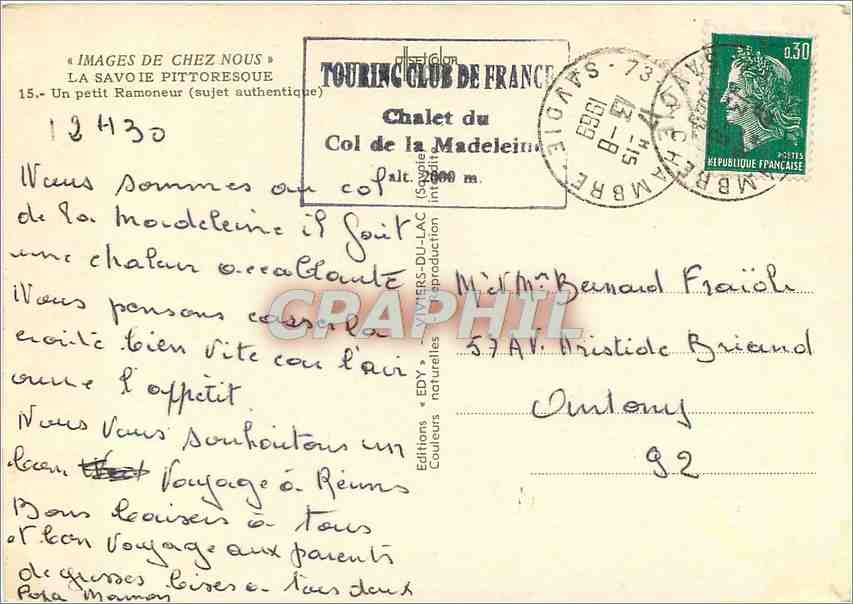 « IMAGES DE CHEZ NOUS »
LA SAVOIE PITTORESQUE
15.- Un petit Ramoneur (sujet authentique)
12H30
Nous sommes au col
de la Madeleine il fait
une chaleur accablante
Nous pensons casser la
croûte bien vite car l'air
ouvre l'appétit
Nous vous souhaitons un
bon voyage à Reims
Bons baisers à tous
et bon voyage aux parents
de grosses bises a tous deux
Papa Maman
offset color
TOURING CLUB DE FRANCE
Chalet du
Col de la Madeleine
alt. 2000 m.
Editions « EDY » - VIVIERS-DU-LAC (Savoie)
Couleurs naturelles - Reproduction interdite
73 LA CHAMBRE
15H
13-8
1969
SAVOIE
0,30
POSTES
REPUBLIQUE FRANÇAISE
Mr et Mme Bernard
57 AV. Aristide Briand
Antony
92
CPAPHIL